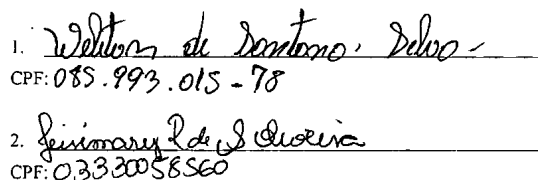 1. Weliton de Santana Silva -
CPF: 085.993.015-78
2. Geisimarey R de S Oliveira
CPF: 03330058560